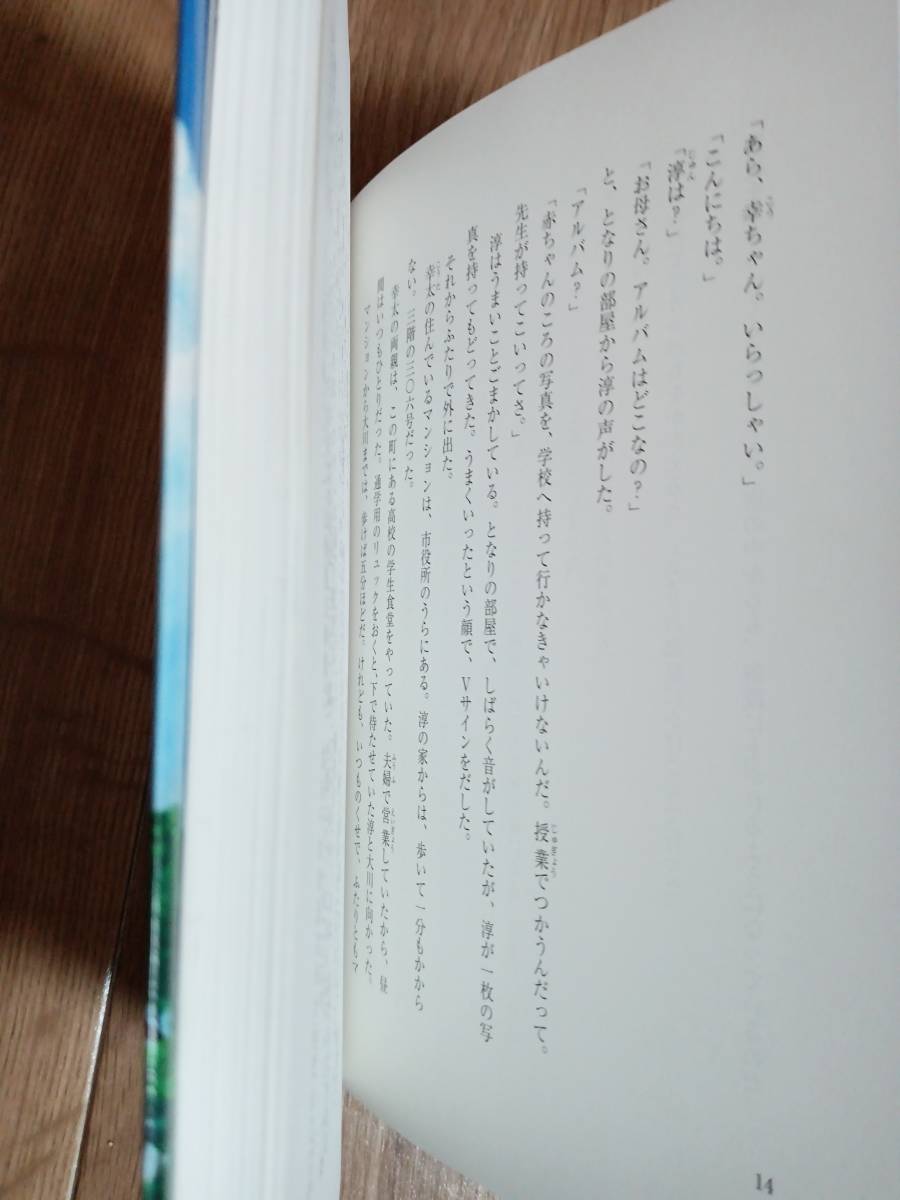 「あら、幸ちゃん。いらっしゃい。」
「こんにちは。」
「淳は？」
「お母さん。アルバムはどこなの？」
と、となりの部屋から淳の声がした。
「アルバム？」
「赤ちゃんのころの写真を、学校へ持って行かなきゃいけないんだ。授業でつかうんだって。
先生が持ってこいってさ。」
淳はうまいことごまかしている。となりの部屋で、しばらく音がしていたが、淳が一枚の写
真を持ってもどってきた。うまくいったという顔で、Vサインをだした。
それからふたりで外に出た。
幸太の住んでいるマンションは、市役所のうらにある。淳の家からは、歩いて一分もかから
ない。三階の三〇六号だった。
幸太の両親は、この町にある高校の学生食堂をやっていた。夫婦で営業していたから、昼
間はいつもひとりだった。通学用のリュックをおくと、下で待たせていた淳と大川に向かった。
マンションから大川までは、歩けば五分ほどだ。けれども、いつものくせで、ふたりともマ
14